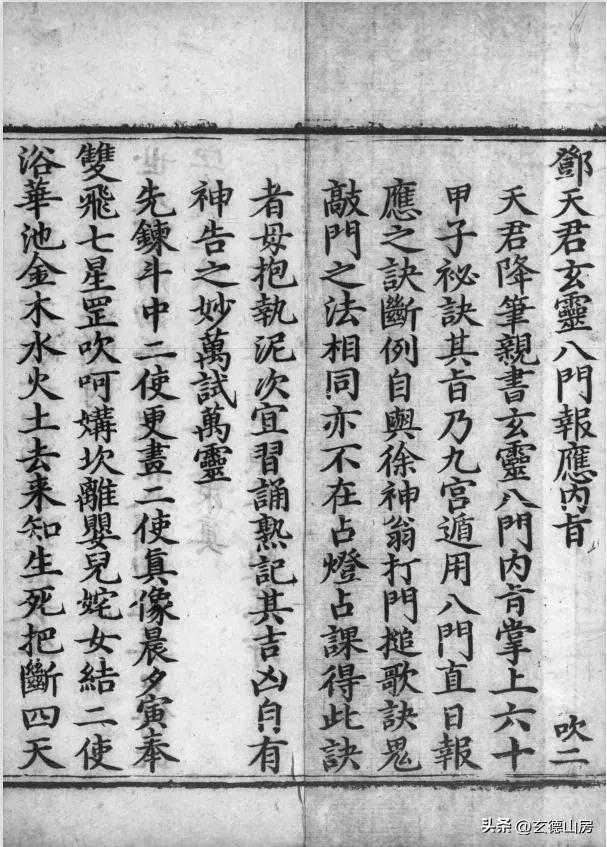 鄧天君玄靈八門報應內旨
吹二
天君降筆親書玄靈八門内肓掌上六十
甲子祕訣其旨乃九宮遁用八門直日報
應之訣斷例自與徐神翁打門搥歌訣鬼
敲門之法相同亦不在占燈占課得此訣
者毋抱執泥次宜習誦熟記其吉凶自有
神告之妙萬試萬靈
先鍊斗中二使更畫二使眞像晨夕寅奉
雙飛七星罡吹呵媾坎離嬰兒姹女結二使
浴華池金木水火土去来知生死把斷四天
头条 @玄德山房